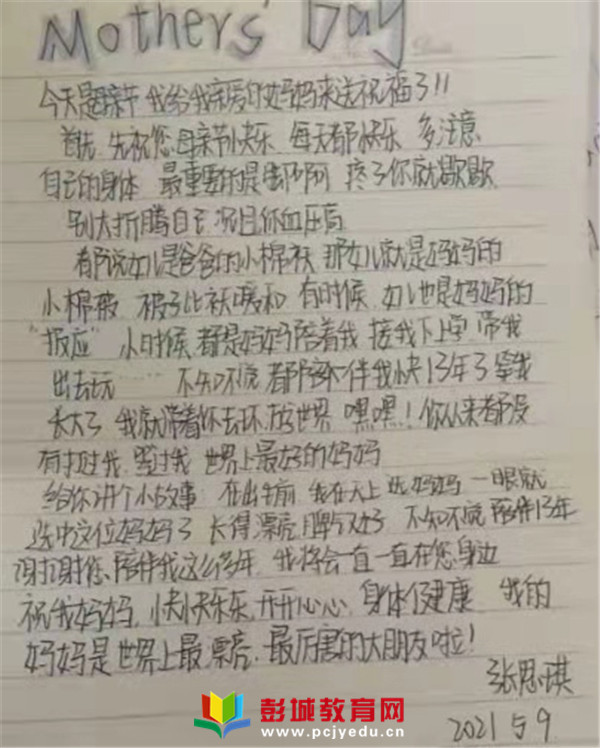 Mothers' Day
今天是母亲节 我给我亲爱的妈妈来送祝福了!!
首先 先祝您母亲节快乐 每天都快乐 多注意
自己的身体 最重要的是 疼了你就歇歇
别太折腾自己 况且你血压高
都说女儿是爸爸的小棉袄 那女儿就是妈妈的
小棉被 被子比袄暖和 有时候 女儿也是妈妈的
"报应" 小时候 都是妈妈陪着我 接我下上学 带我
出去玩…… 不知不觉 都陪伴我快13年了 等我
长大了 我就带着你去环游世界 嘿嘿! 你从来都没
有打过我 骂过我 世界上最好的妈妈
给你讲个小故事 在出生前 我在天上选妈妈 一眼就
选中这位妈妈了 长得漂亮 脾气好 不知不觉 陪伴13年
谢谢您 陪伴我这么多年 我将会一直一直在您身边
祝我妈妈 快快乐乐 开开心心 身体健康 我的
妈妈是世界上最漂亮 最厉害的大朋友啦!
张思琪
2021 5 9
彭城教育网
www.pcjyedu.cn